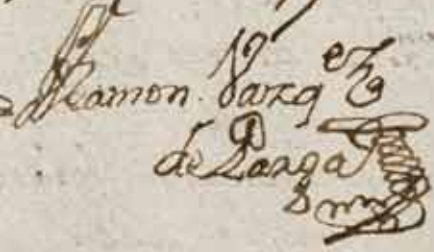 Ramon Varzq^ez
de Parga